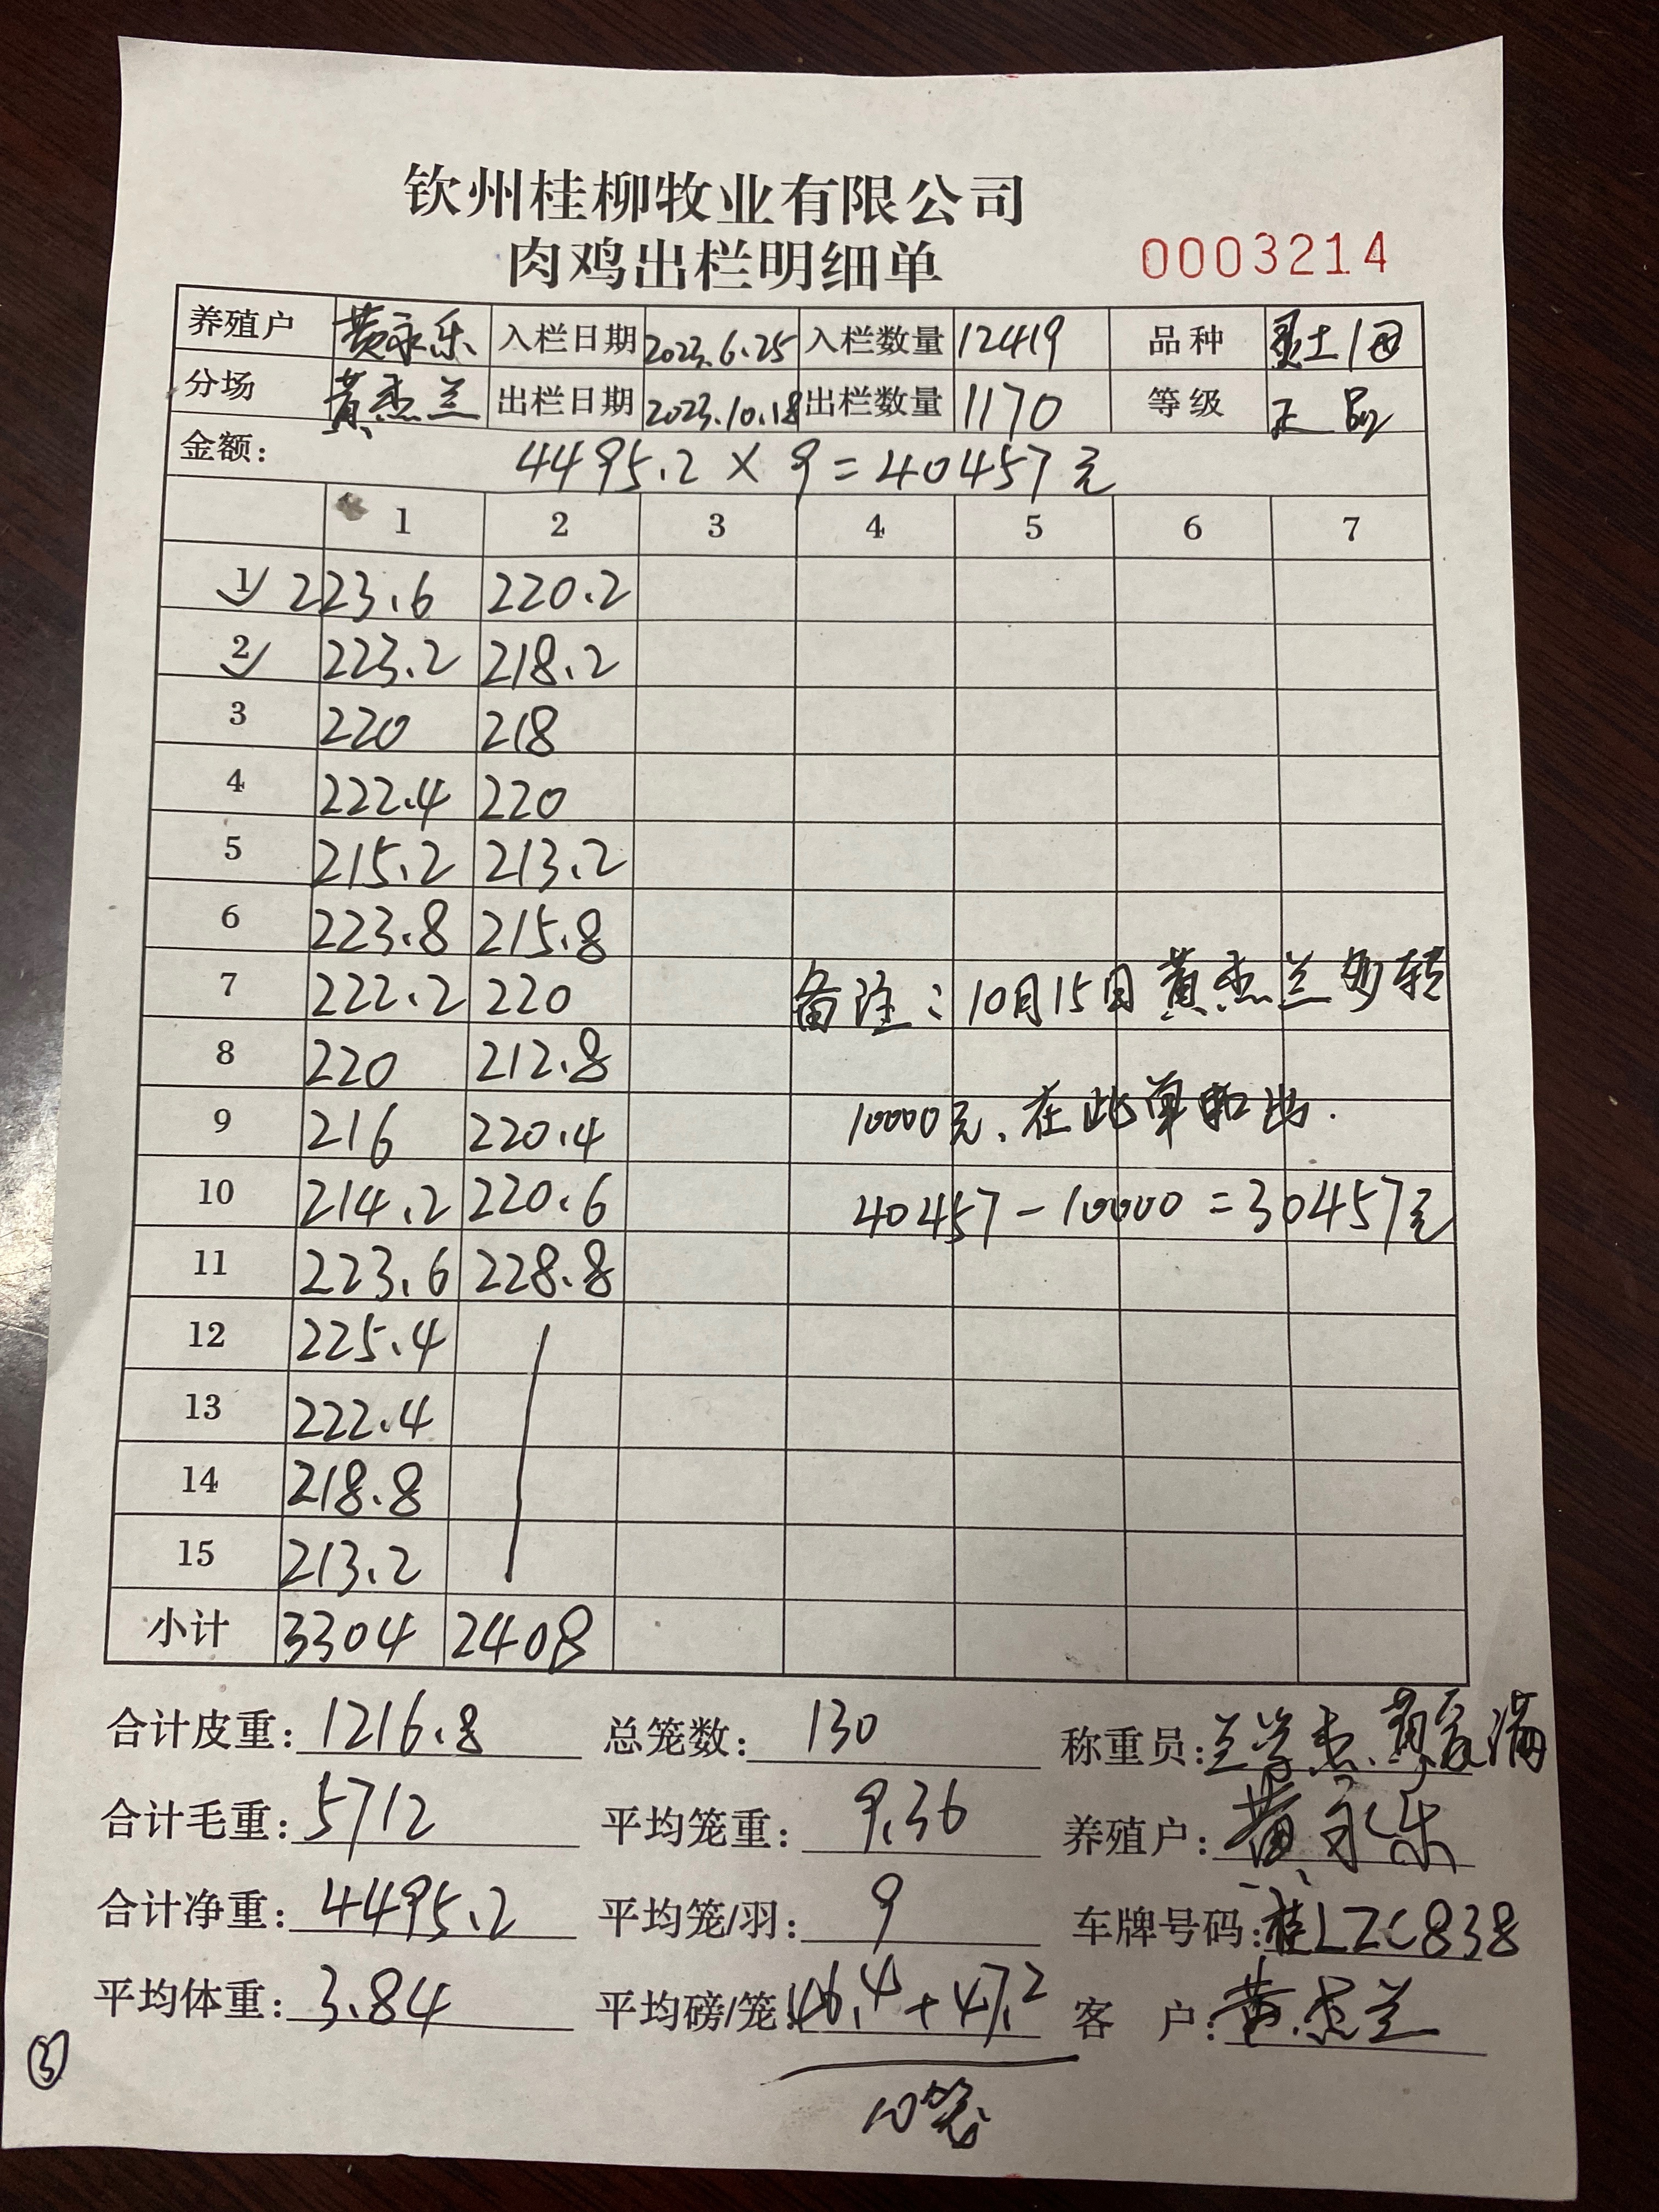 钦州桂柳牧业有限公司
肉鸡出栏明细单 0003214
养殖户 黄永乐 入栏日期 2023.6.25 入栏数量 12419 品种 灵土1母
分场 黄杰兰 出栏日期 2023.10.18 出栏数量 1170 等级 正品
金额: 4495.2×9=40457元
1 2 3 4 5 6 7
1 223.6 220.2
2 223.2 218.2
3 220 218
4 222.4 220
5 215.2 213.2
6 223.8 215.8
7 222.2 220 备注:10月15日黄杰兰多转
8 220 212.8
9 216 220.4 10000元、在此单扣出.
10 214.2 220.6 40457-10000=30457元
11 223.6 228.8
12 225.4
13 222.4
14 218.8
15 213.2
小计 3304 2408
合计皮重: 1216.8 总笼数: 130 称重员: 兰学杰、黄爱满
合计毛重: 5712 平均笼重: 9.36 养殖户: 黄永乐
合计净重: 4495.2 平均笼/羽: 9 车牌号码: 桂LZC838
平均体重: 3.84 平均磅/笼: 46.4+47.2 客 户: 黄杰兰
③ 10笼